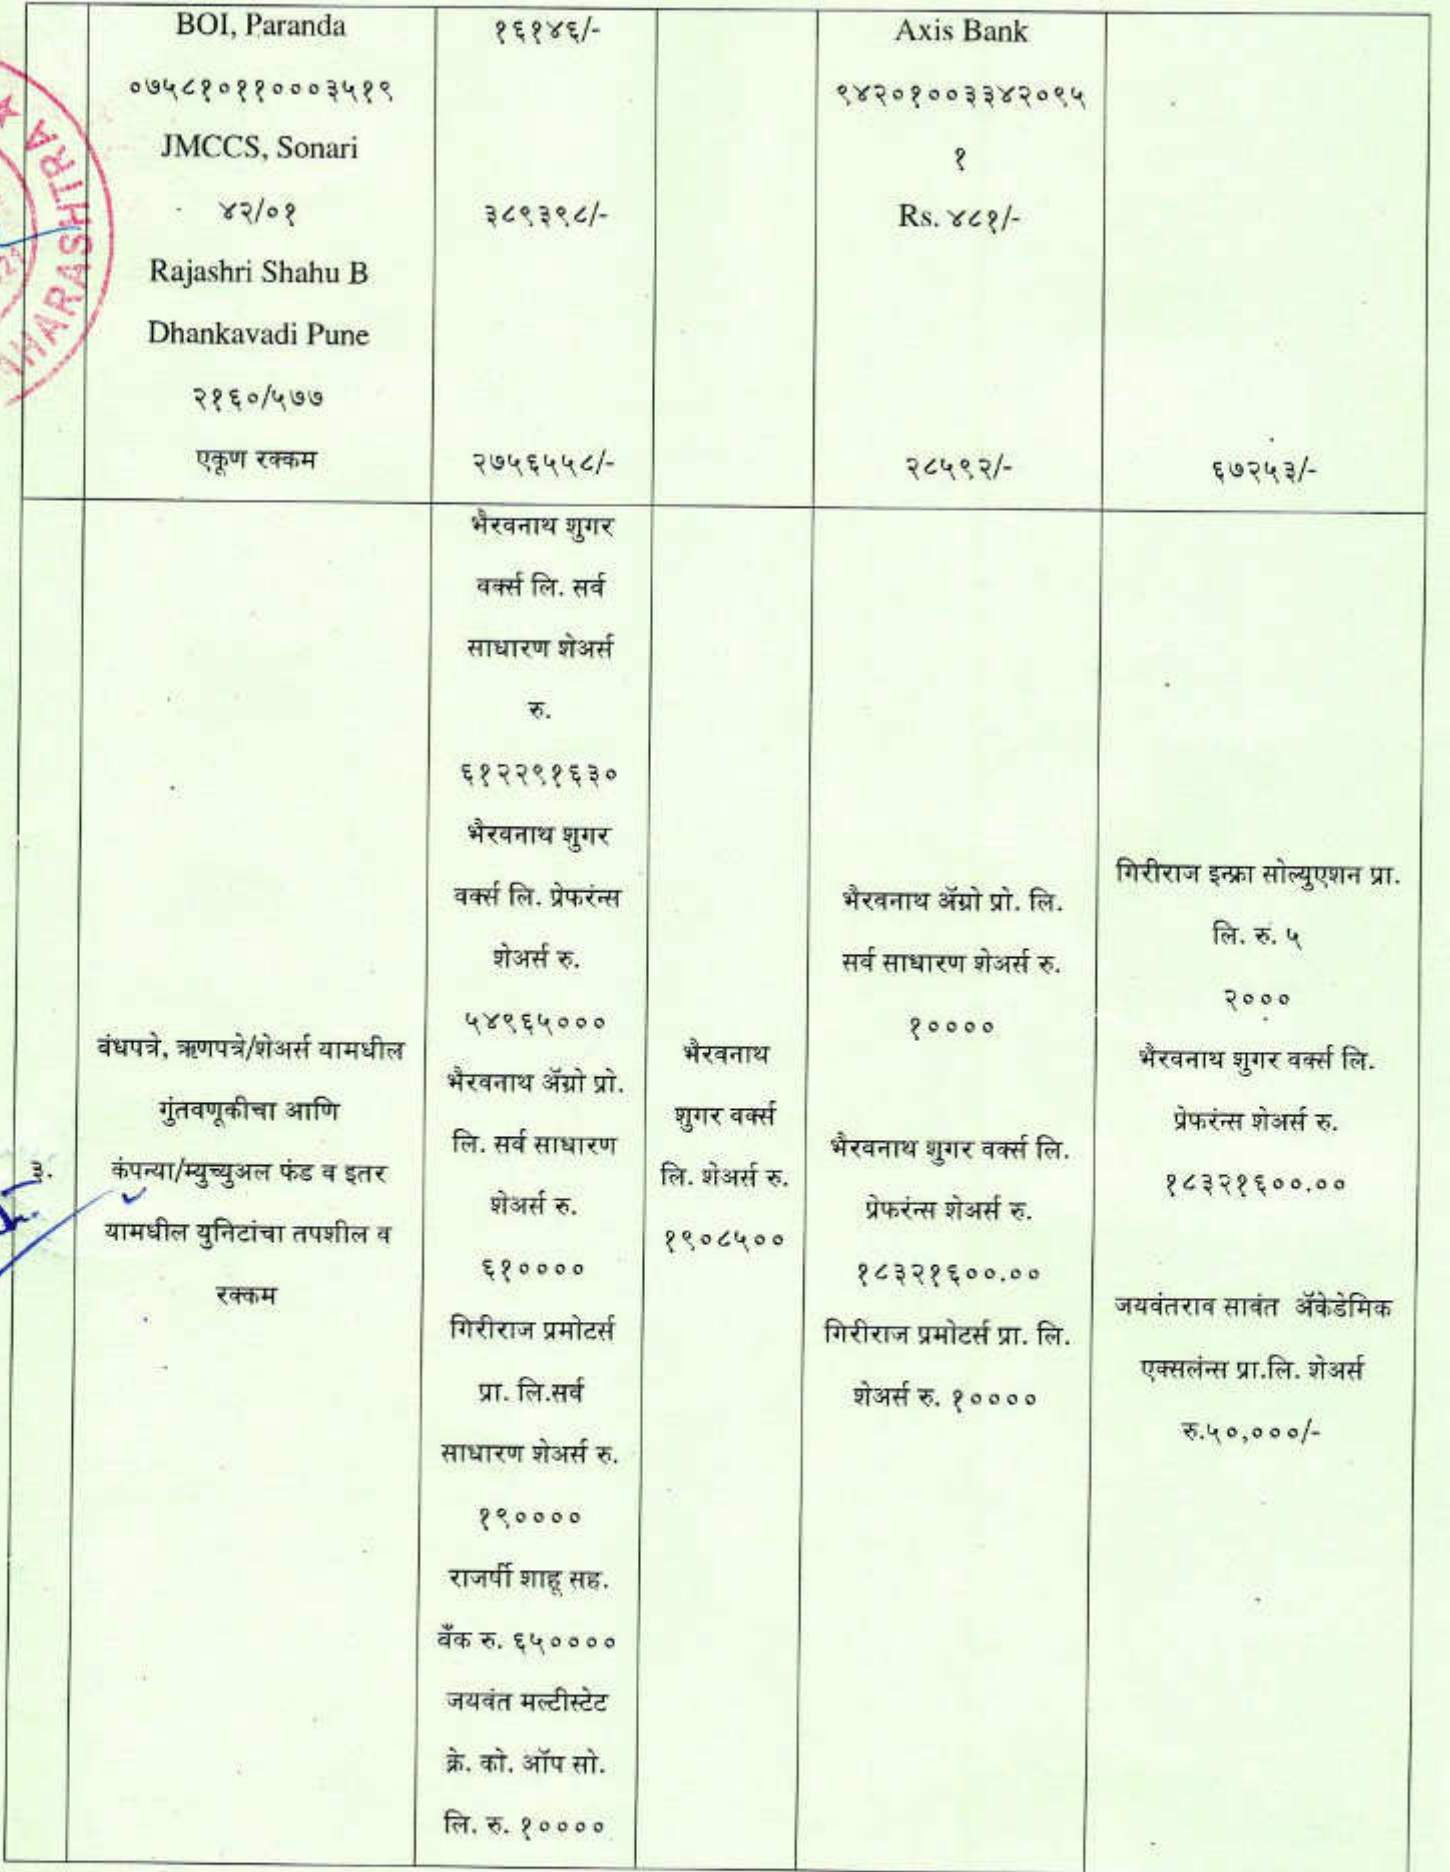 BOI, Paranda
०७५८१०११०००३५१९
JMCCS, Sonari
४२/०१
Rajashri Shahu B
Dhankavadi Pune
२१६०/५७७
एकूण रक्कम
१६१४६/-
३८९३९८/-
२७५६५५८/-
Axis Bank
९४२०१००३३४२०९५
१
Rs. ४८१/-
२८५९२/-
६७२५३/-
३.
बंधपत्रे, ऋणपत्रे/शेअर्स यामधील
गुंतवणूकीचा आणि
कंपन्या/म्युच्युअल फंड व इतर
यामधील युनिटांचा तपशील व
रक्कम
भैरवनाथ शुगर
वर्क्स लि. सर्व
साधारण शेअर्स
रु.
६१२२९१६३०
भैरवनाथ शुगर
वर्क्स लि. प्रेफरंन्स
शेअर्स रु.
५४९६५०००
भैरवनाथ ॲग्रो प्रो.
लि. सर्व साधारण
शेअर्स रु.
६१००००
गिरीराज प्रमोटर्स
प्रा. लि.सर्व
साधारण शेअर्स रु.
१९००००
राजर्षी शाहू सह.
बँक रु. ६५००००
जयवंत मल्टीस्टेट
क्रे. को. ऑप सो.
लि. रु. १००००
भैरवनाथ
शुगर वर्क्स
लि. शेअर्स रु.
१९०८५००
भैरवनाथ ॲग्रो प्रो. लि.
सर्व साधारण शेअर्स रु.
१००००
भैरवनाथ शुगर वर्क्स लि.
प्रेफरंन्स शेअर्स रु.
१८३२१६००.००
गिरीराज प्रमोटर्स प्रा. लि.
शेअर्स रु. १००००
गिरीराज इन्फ्रा सोल्युएशन प्रा.
लि. रु. ५
२०००
भैरवनाथ शुगर वर्क्स लि.
प्रेफरंन्स शेअर्स रु.
१८३२१६००.००
जयवंतराव सावंत ॲकेडेमिक
एक्सलंन्स प्रा.लि. शेअर्स
रु.५०,०००/-
AHARASHTRA